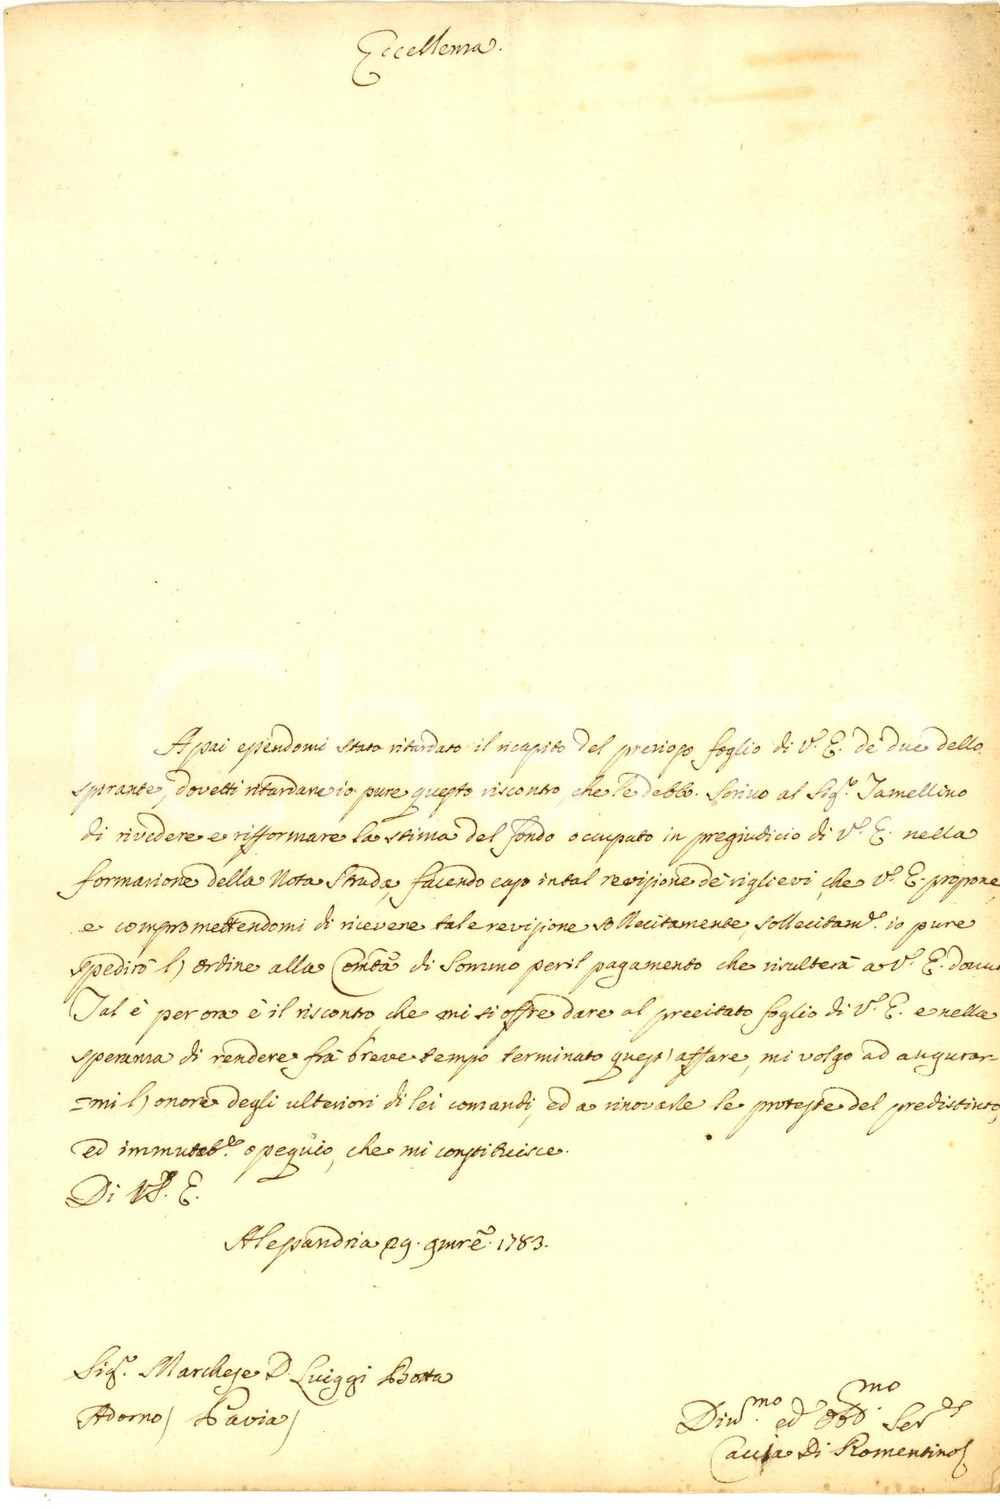 Eccellenza.
Assai essendomi stato ritardato il ricapito del prezioso foglio di V.ª E. de due dello
spirante, dovetti ritardare io pure questo riscontro, che le debbo. Scrivo al Sig.r Tamellino
di rivedere e rifformare la stima del fondo occupato in pregiudicio di V.ª E. nella
formazione della Nota Strada, facendo capo in tal revisione de riglievi, che V.ª E. propone,
e compromettendomi di ricevere tale revisione sollecitamente, sollecitam.e io pure
spedirò l'ordine alla Comtà di Sommo per il pagamento che risulterà a V.ª E.
Tal è per ora è il riscontro che mi si offre dare al precitato foglio di V.ª E. e nella
speranza di rendere frà breve tempo terminato quest'affare, mi volgo ad augurar
=mi l'onore degli ulteriori di lei comandi, ed a rinovarle le proteste del predistinto,
ed immutab.e ossequio, che mi constituisce.
Di V.ª E.
Alessandria 29. 9mbre. 1783.
Sig.r Marchese D. Luiggi Botta
Adorno / Pavia /
Div.mo ed obb.mo Ser.re
Caccia di Romentino